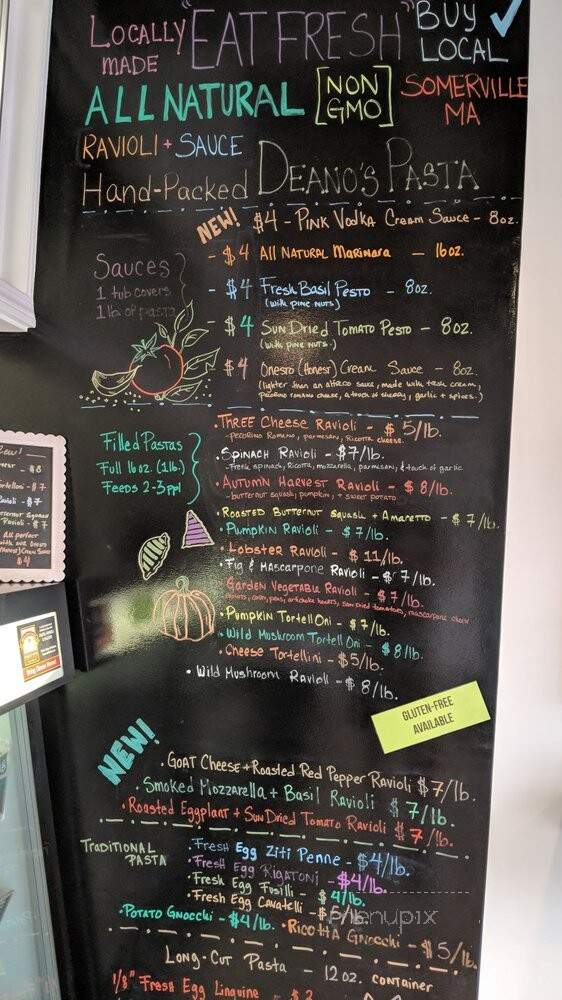 Locally made
"EAT FRESH"
Buy Local
ALL NATURAL
NON GMO
SOMERVILLE MA
RAVIOLI + SAUCE
Hand-Packed DEANO'S PASTA
Sauces
1 tub covers
1 lb of pasta
NEW! $4 - Pink Vodka Cream Sauce - 8oz.
- $4 All Natural Marinara - 16oz.
- $4 Fresh Basil Pesto - 8oz.
(with pine nuts)
- $4 Sun Dried Tomato Pesto - 8oz.
(with pine nuts.)
$4 Onesto (Honest) Cream Sauce - 8oz.
(lighter than an alfredo sauce, made with fresh cream,
pecorino romano cheese, a touch of sherry, garlic + spices.)
Filled Pastas
Full 16oz. (1lb.)
Feeds 2-3ppl
• Three Cheese Ravioli - $5/lb.
- Pecorino Romano, parmesan, Ricotta cheese.
• Spinach Ravioli - $7/lb.
- Fresh spinach, Ricotta, mozzarella, parmesan, & touch of garlic
• Autumn Harvest Ravioli - $8/lb.
- butternut squash, pumpkin, + sweet potato
• Roasted Butternut Squash + Amaretto - $7/lb.
• Pumpkin Ravioli - $7/lb.
• Lobster Ravioli - $11/lb.
• Fig & Mascarpone Ravioli - $7/lb.
• Garden Vegetable Ravioli - $7/lb.
carrots, corn, peas, artichoke hearts, sun dried tomatoes, mascarpone cheese
• Pumpkin TortellOni - $7/lb.
• Wild Mushroom TortellOni - $8/lb.
• Cheese Tortellini - $5/lb.
• Wild Mushroom Ravioli - $8/lb.
GLUTEN-FREE
AVAILABLE
NEW!
• Goat Cheese + Roasted Red Pepper Ravioli $7/lb.
• Smoked Mozzarella + Basil Ravioli $7/lb.
• Roasted Eggplant + Sun Dried Tomato Ravioli $7/lb.
Traditional Pasta
• Fresh Egg Ziti Penne - $4/lb.
• Fresh Egg Rigatoni - $4/lb.
• Fresh Egg Fusilli - $4/lb.
• Fresh Egg Cavatelli -
menupix
• Potato Gnocchi - $4/lb. • Ricotta Gnocchi - $5/lb.
Long-Cut Pasta - 12 oz. container
1/8" Fresh Egg Linguine - $3